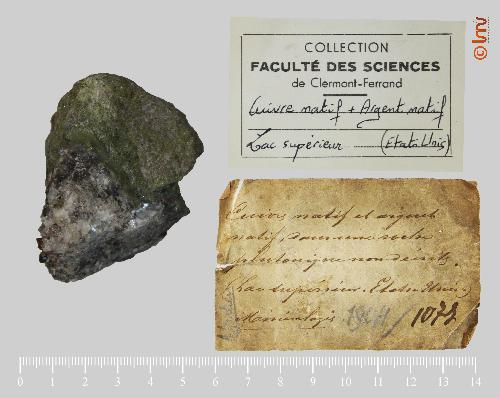 COLLECTION
FACULTÉ DES SCIENCES
de Clermont-Ferrand
Cuivre natif + Argent natif
Lac supérieur (Etats Unis)
Cuivre natif et argent
natif, dans une roche
plutonique non décrite.
(Lac supérieur. Etats-Unis)
Minéralogie 1073
0 1 2 3 4 5 6 7 8 9 10 11 12 13 14
© lmv